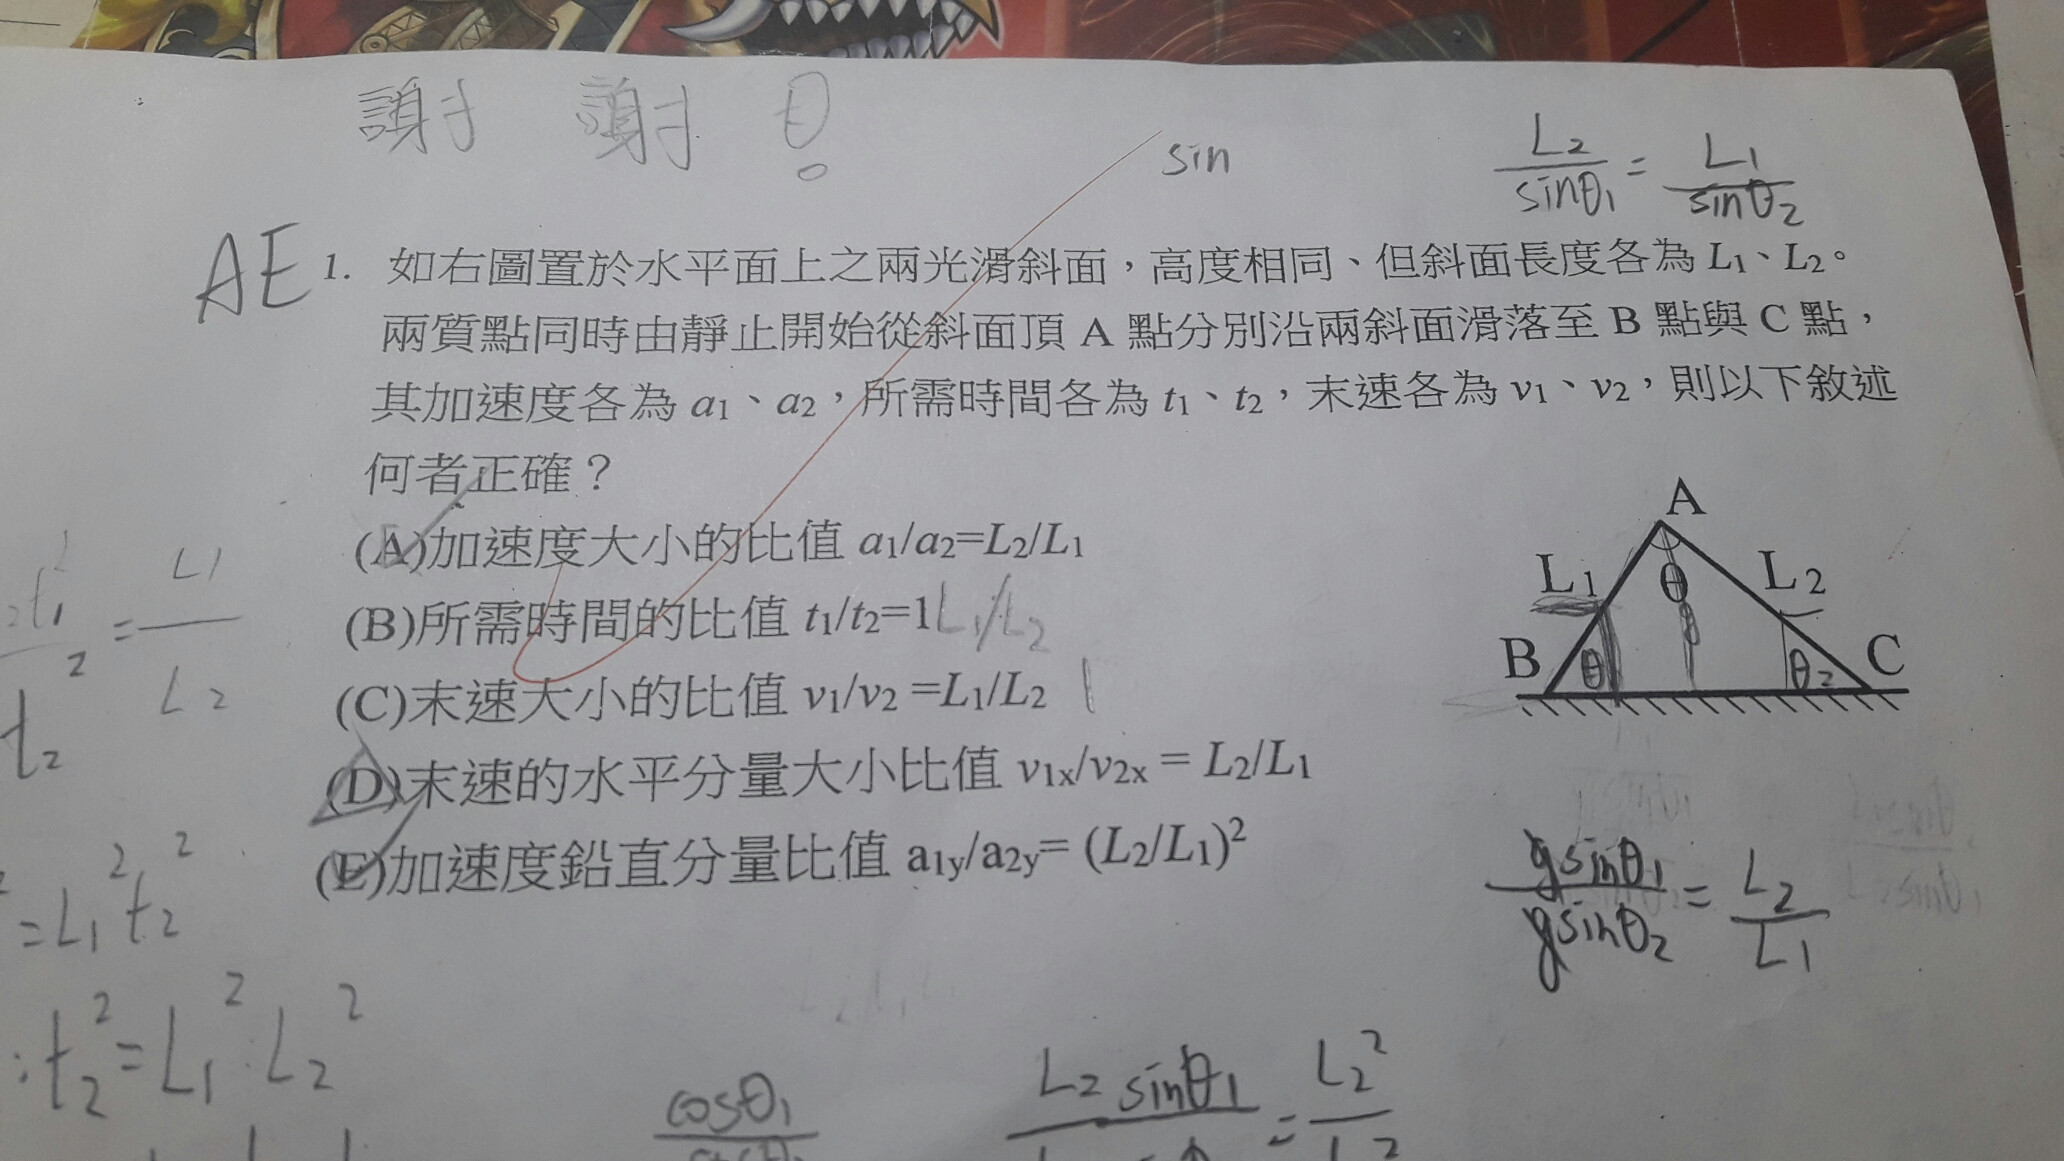 謝 謝 θ
sin
L2/sinθ1 = L1/sinθ2
AE 1. 如右圖置於水平面上之兩光滑斜面，高度相同、但斜面長度各為 L1、L2。
兩質點同時由靜止開始從斜面頂 A 點分別沿兩斜面滑落至 B 點與 C 點，
其加速度各為 a1、a2，所需時間各為 t1、t2，末速各為 v1、v2，則以下敘述
何者正確？
(A)加速度大小的比值 a1/a2=L2/L1
(B)所需時間的比值 t1/t2=1 L1/L2
(C)末速大小的比值 v1/v2 =L1/L2 1
(D)末速的水平分量大小比值 v1x/v2x = L2/L1
(E)加速度鉛直分量比值 a1y/a2y= (L2/L1)²
A
L1 θ L2
B θ θ2 C
gsinθ1/gsinθ2 = L2/L1
= L1/L2
t2
=L1²t2²
:t2²=L1²:L2²
cosθ1
L2 sinθ1 = L2²